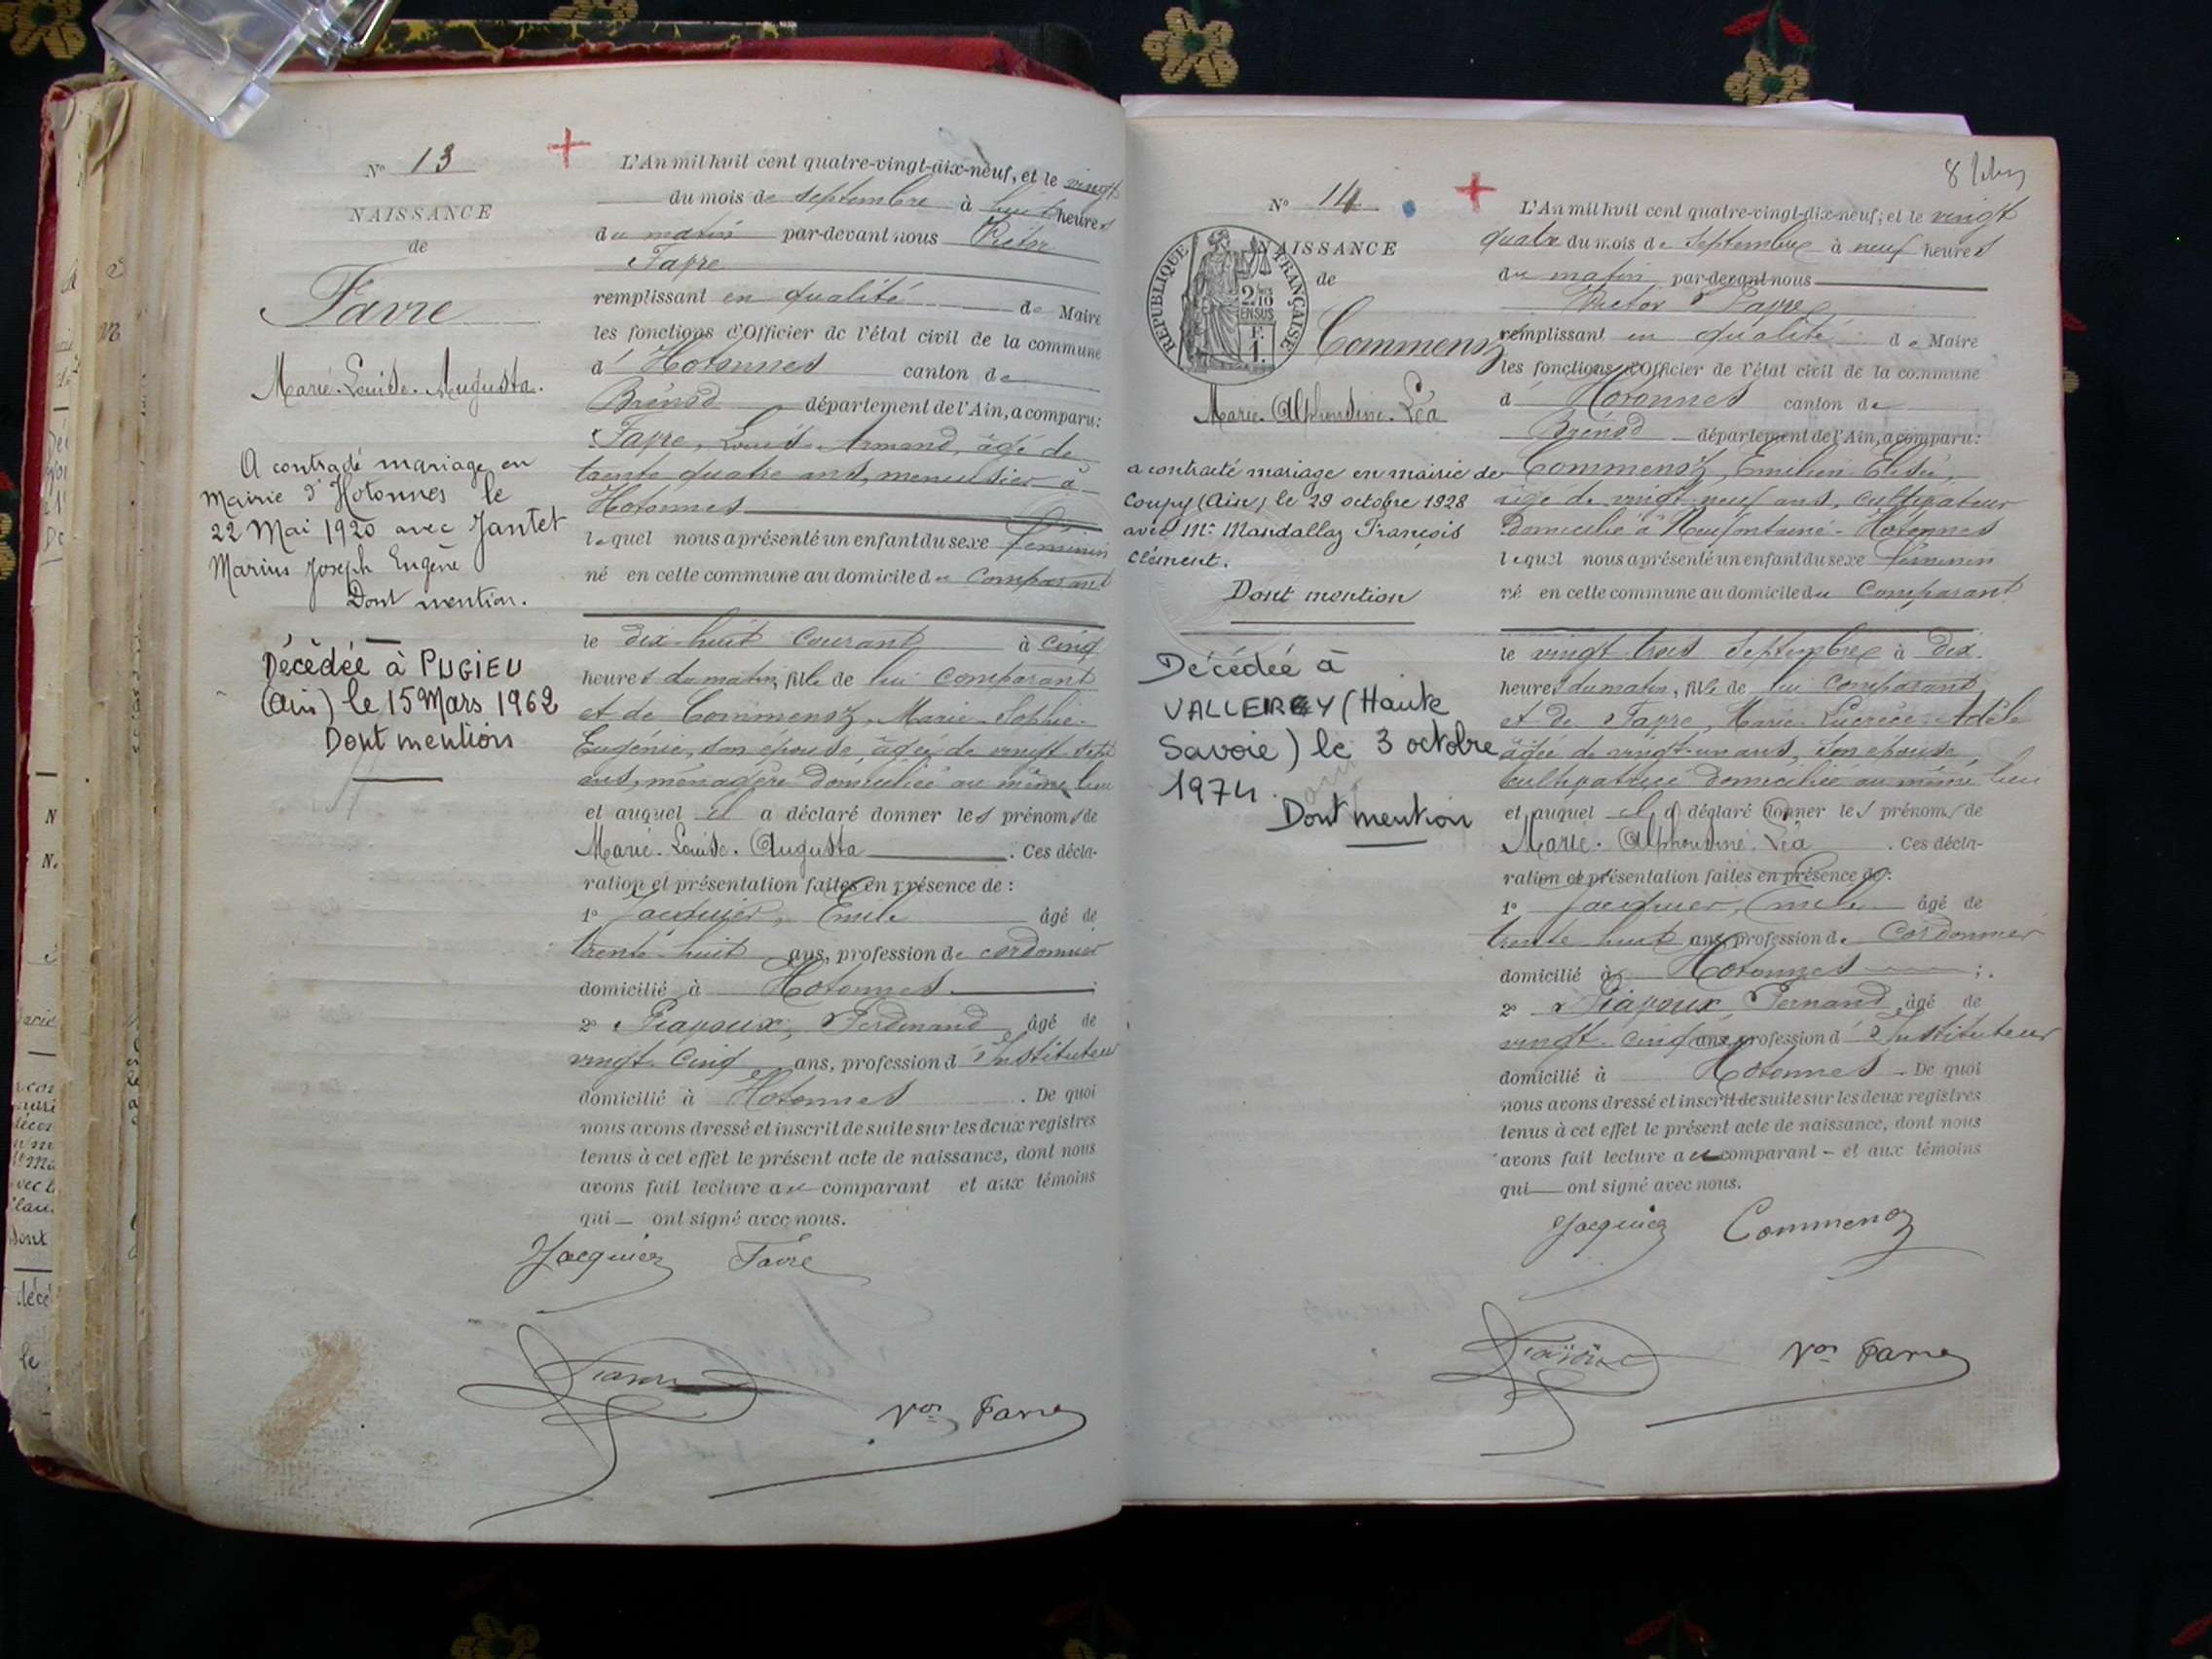 N° 13
NAISSANCE
de
Favre
Marie-Louise-Augusta.
A contracté mariage en
Mairie d'Hotonnes le
22 Mai 1920 avec Jantet
Marius Joseph Eugène
Dont mention.
Décédée à PUGIEU
(Ain) le 15 Mars 1962
Dont mention
L'An mil huit cent quatre-vingt-dix-neuf, et le vingt
du mois de septembre à huit heures
du matin par-devant nous Victor
Favre
remplissant en qualité de Maire
les fonctions d'Officier de l'état civil de la commune
d'Hotonnes canton de
Brénod département de l'Ain, a comparu:
Favre, Louis-Armand, âgé de
trente quatre ans, menuisier à
Hotonnes
lequel nous a présenté un enfant du sexe féminin
né en cette commune au domicile du comparant
le dix huit courant à cinq
heures du matin, fille de lui comparant
et de Commensoz, Marie-Sophie-
Eugénie, son épouse, âgée de vingt-sept
ans, ménagère domiciliée au même lieu
et auquel il a déclaré donner les prénoms de
Marie-Louise-Augusta. Ces décla-
ration et présentation faites en présence de :
1° Jacquier, Emile âgé de
trente-huit ans, profession de cordonnier
domicilié à Hotonnes ;
2° Piavoux, Ferdinand, âgé de
vingt-cinq ans, profession d'Instituteur
domicilié à Hotonnes. De quoi
nous avons dressé et inscrit de suite sur les deux registres
tenus à cet effet le présent acte de naissance, dont nous
avons fait lecture au comparant et aux témoins
qui — ont signé avec nous.
Jacquier Favre
Vor Favre
8
N° 14
NAISSANCE
de
REPUBLIQUE FRANÇAISE
2/10
EN SUS
F.
1.
Commensoz
Marie-Alphonsine-Léa
a contracté mariage en mairie de
Coupy (Ain) le 29 octobre 1928
avec Mr Mandallaz François
Clément.
Dont mention
Décédée à
VALLEIRY (Haute
Savoie) le 3 octobre
1974.
Dont mention
L'An mil huit cent quatre-vingt-dix-neuf, et le vingt
quatre du mois de septembre à neuf heures
du matin par-devant nous
Victor Favre
remplissant en qualité de Maire
les fonctions d'Officier de l'état civil de la commune
d'Hotonnes canton de
Brénod département de l'Ain, a comparu:
Commensoz, Emilien-Elisée,
âgé de vingt-neuf ans, cultivateur
domicilié à Neufontaine-Hotonnes
lequel nous a présenté un enfant du sexe féminin
né en cette commune au domicile du comparant
le vingt trois septembre à dix
heures du matin, fille de lui comparant
et de Favre, Marie-Lucrèce-Adèle
âgée de vingt-un ans, son épouse,
cultivatrice domiciliée au même lieu
et auquel il a déclaré donner les prénoms de
Marie-Alphonsine-Léa. Ces décla-
ration et présentation faites en présence de :
1° Jacquier, Emile âgé de
trente huit ans, profession de Cordonnier
domicilié à Hotonnes ;
2° Piavoux, Fernand, âgé de
vingt-cinq ans, profession d'Instituteur
domicilié à Hotonnes. De quoi
nous avons dressé et inscrit de suite sur les deux registres
tenus à cet effet le présent acte de naissance, dont nous
avons fait lecture au comparant — et aux témoins
qui — ont signé avec nous.
Jacquier Commensoz
Piavoux Vor Favre